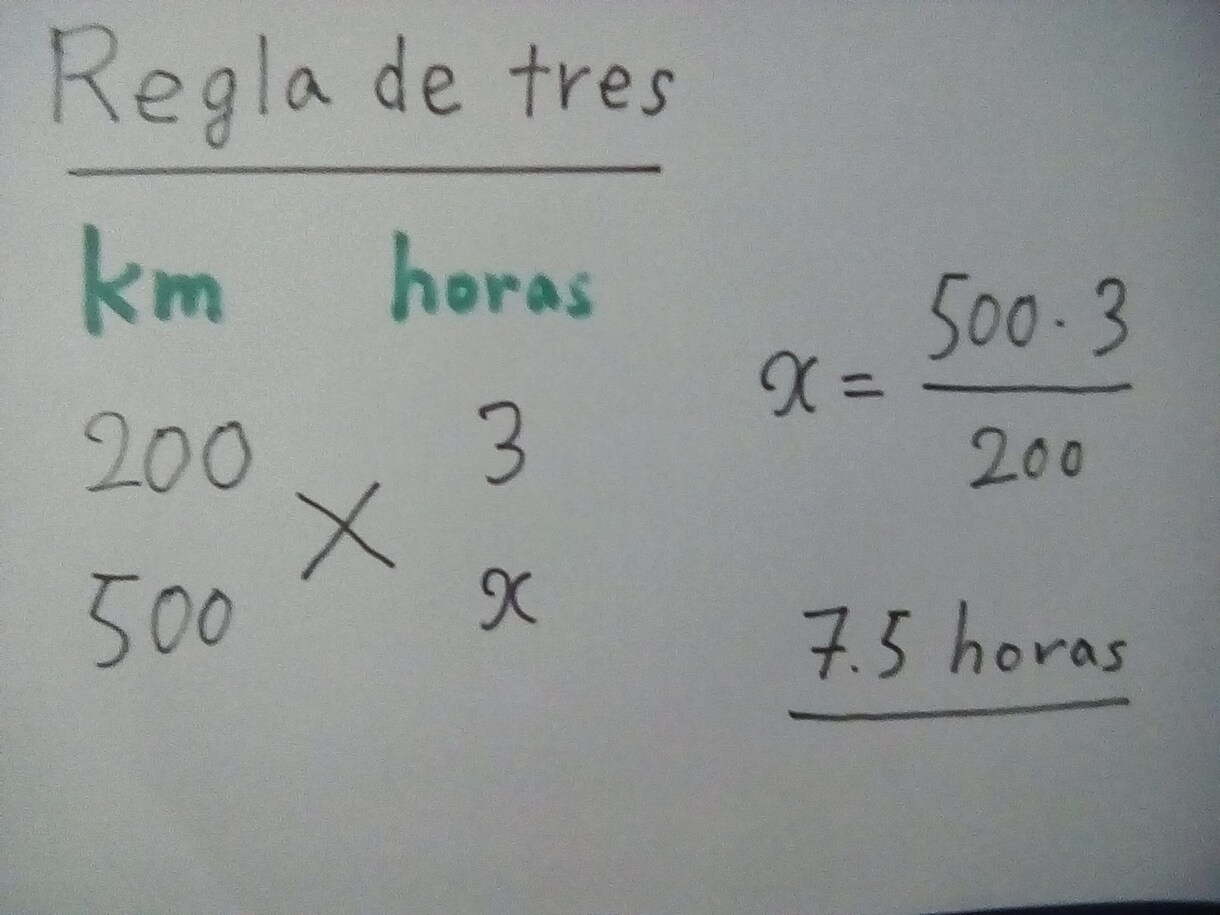 Regla de tres
km horas
200 3
500 x
x = 500 · 3 / 200
7.5 horas